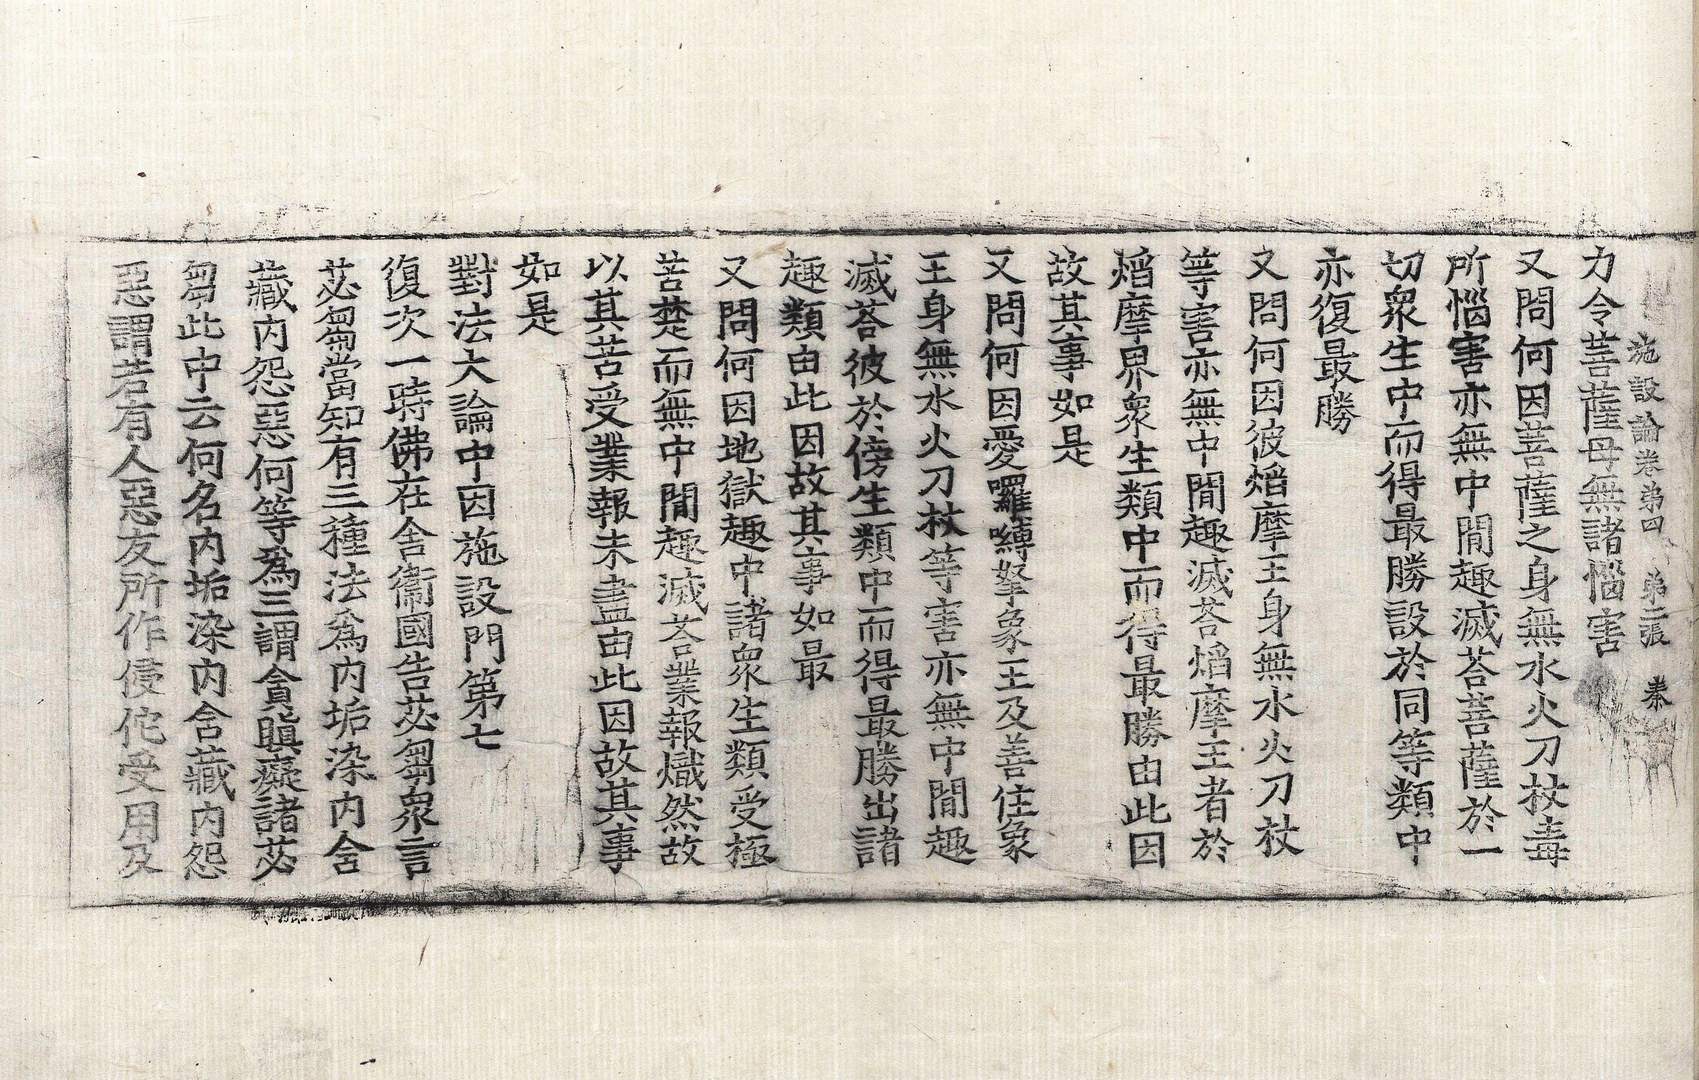 施設論卷苐四　苐二張　㮈
力令菩薩母無諸惱害
又問何因菩薩之身無水火刀杖毒
所惱害亦無中閒趣滅荅菩薩於一
切衆生中而得最勝設於同等類中
亦復最勝
又問何因彼焰摩王身無水火刀杖
等害亦無中閒趣滅荅焰摩王者於
焰摩界衆生類中而得最勝由此因
故其事如是
又問何因愛囉嚩拏象王及善住象
王身無水火刀杖等害亦無中閒趣
滅荅彼於傍生類中而得最勝出諸
趣類由此因故其事如最
又問何因地獄趣中諸衆生類受極
苦楚而無中閒趣滅荅業報熾然故
以其苦受業報未盡由此因故其事
如是
對法大論中因施設門第七
復次一時佛在舍衛國告苾芻衆言
苾芻當知有三種法爲内垢染内含
藏内怨惡何等爲三謂貪瞋癡諸苾
芻此中云何名内垢染内含藏内怨
惡謂若有人惡友所作侵佗受用及